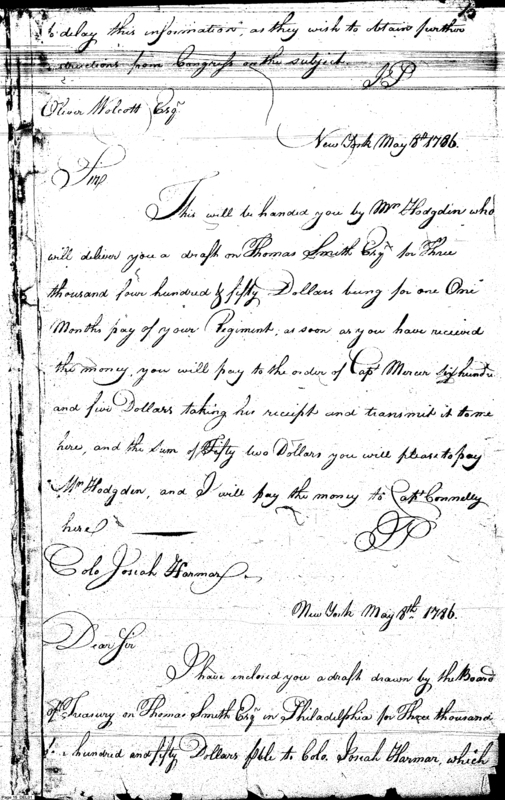 13
to delay this information, as they wish to obtain further
instructions from Congress on the subject.
JP
Oliver Wolcott Esqr
New York May 8th 1786.
Sir
This will be handed you by Mr Hodgdin who
will deliver you a draft on Thomas Smith Esqr for Three
thousand four hundred & fifty Dollars being for one One
Months pay of your Regiment, as soon as you have received
the money, you will pay to the order of Capt Mercer six hundre
and five Dollars taking his receipt and transmit it to me
here, and the sum of Fifty two Dollars you will please to pay
Mr Hodgdin, and I will pay the money to Capt Connelly
here
JP
Colo Josiah Harmar.
New York May 8th 1786.
Dear Sir
I have enclosed you a draft drawn by the Board
of Treasury on Thomas Smith Esqr in Philadelphia for Three thousand
hundred and fifty Dollars pble to Colo. Josiah Harmar, which